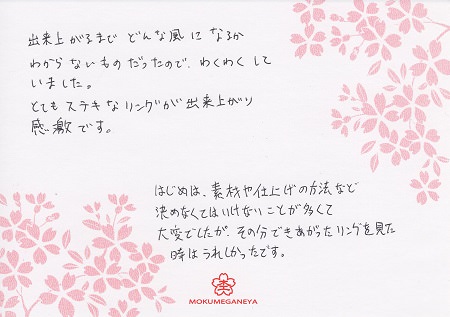 出来上がるまで どんな風に なるか
わからないものだったので、わくわくして
いました。
とてもステキなリングが出来上がり
感激です。
はじめは、素材や仕上げの方法など
決めなくてはいけないことが多くて
大変でしたが、その分できあがったリングを見た
時はうれしかったです。
MOKUMEGANEYA